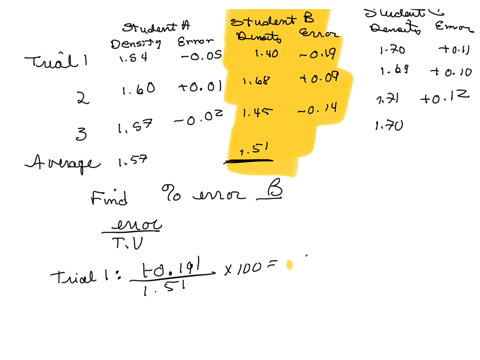 Student A Student B Student C
Density Error Density Error Density Error
Trial 1 1.54 -0.05 1.40 -0.19 1.70 +0.11
2 1.60 +0.01 1.68 +0.09 1.69 +0.10
3 1.57 -0.02 1.45 -0.14 1.71 +0.12
Average 1.57 1.51 1.70
Find % error B
error
T.V
Trial 1: |-0.19| × 100 =
1.51